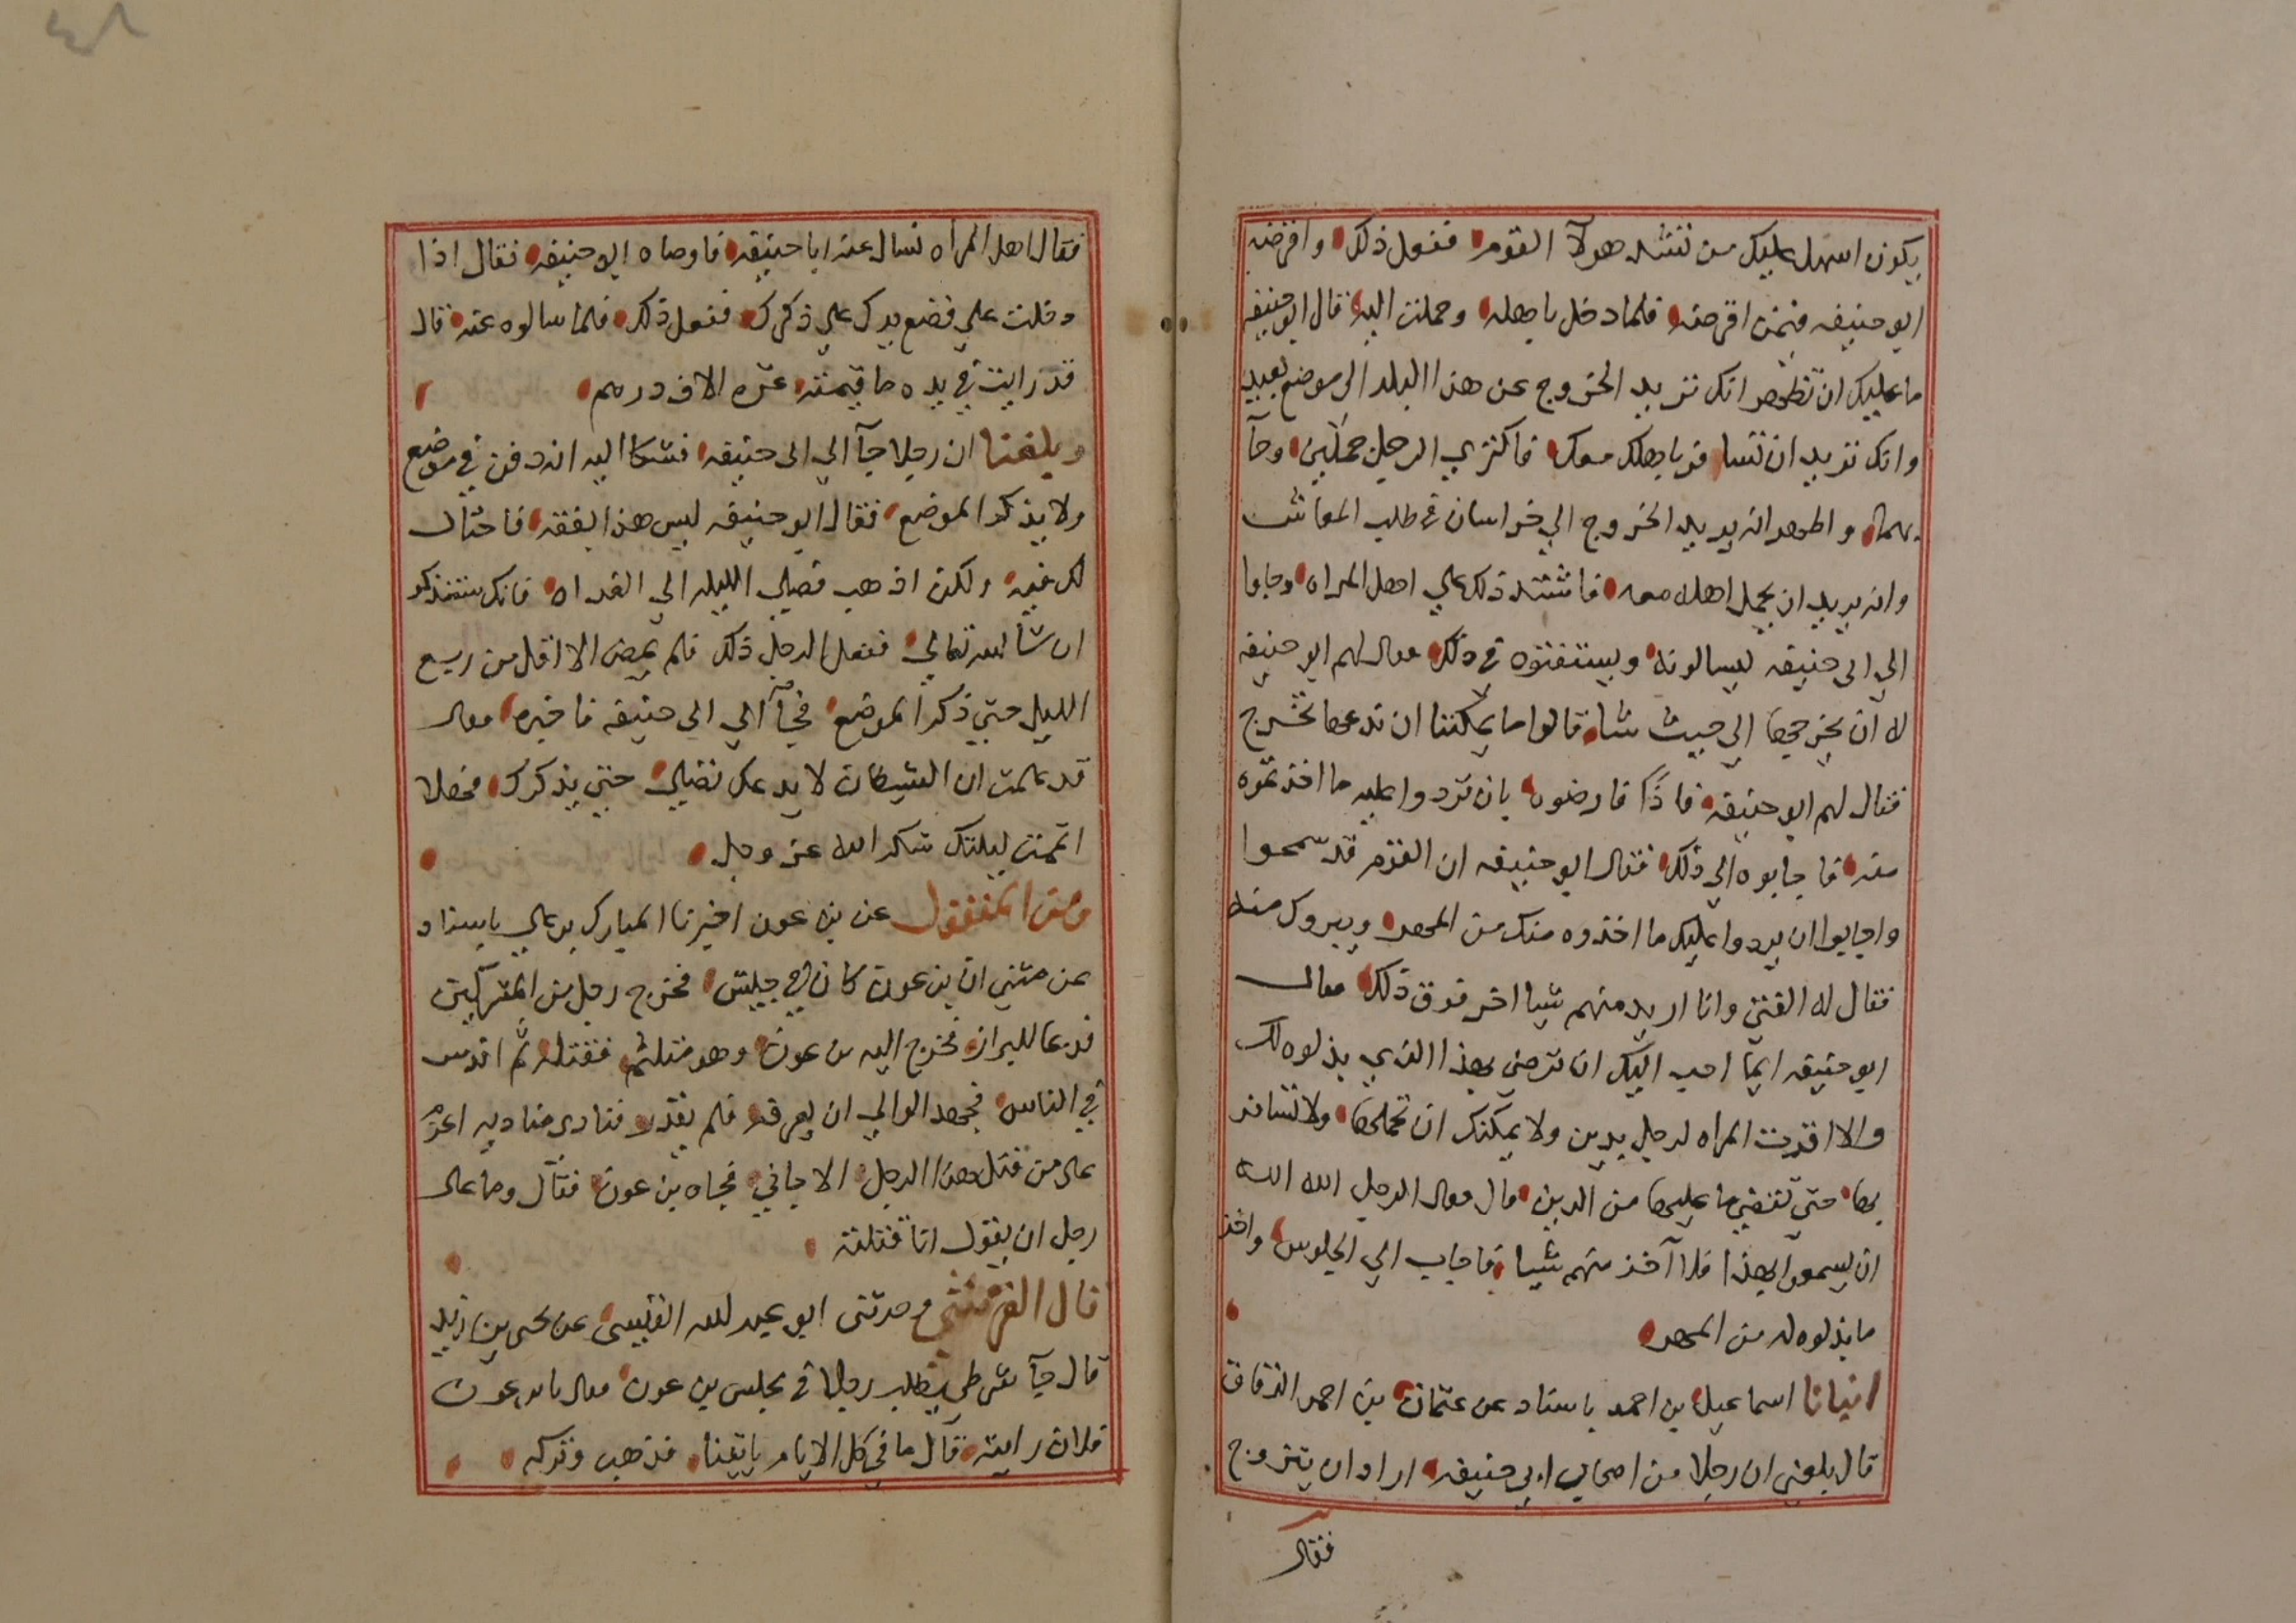 يكون اسهل عليك من تشدد هولآ القوم ففعل ذلك واقرضه
ابو حنيفه فيمن اقرضه فلما دخل باهله وحملت اليه قال ابو حنيفه
ما عليك ان تظهر انك تريد الخروج عن هذا البلد الى موضع بعيد
وانك تريد ان تسافر باهلك معك فاكتري الرجل جملين وجآ
بهما واظهر انه يريد الخروج الي خراسان في طلب المعاش
وانه يريد ان يحمل اهله معه فاشتد ذلك علي اهل المراه وجاوا
الي ابي حنيفه ليسالونه ويستفتوه في ذلك فقال لهم ابو حنيفه
له ان يخرجها الي حيث شا قالوا ما يمكننا ان ندعها تخرج
فقال لهم ابو حنيفه فارضوه بان تردوا عليه ما اخذتموه
منه فاجابوه الي ذلك فقال ابو حنيفه ان القوم قد سمحوا
واجابوا ان يردوا عليك ما اخذوه منك من المهر ويبروك منه
فقال له الفتي وانا اريد منهم شيا اخر فوق ذلك فقال
ابو حنيفه ايما احب اليك ان ترضي بهذا الذي بذلوه لك
والا اقرت المراه لرجل بدين ولا يمكنك ان تحملها ولا تسافر
بها حتي تقضي ما عليها من الدين قال فقال الرجل الله الله
ان يسمعوا بهذا فلا آخذ منهم شيا فاجاب الي الجلوس واخذ
ما بذلوه له من المهر
انبانا اسماعيل بن احمد باسناد عن عثمان بن احمد الدقاق
قال بلغني ان رجلا من اصحاب ابي حنيفه اراد ان يتزوج
فقال
فقال اهل المراه نسال عنه ابا حنيفه فاوصاه ابو حنيفه فقال اذا
دخلت علي فضع يدك علي ذكرك ففعل ذلك فلما سالوه عنه قال
قد رايت في يده ما قيمته عشره الاف درهم
وبلغنا ان رجلا جآ الي ابي حنيفه فشكا اليه انه دفن في موضع
ولا يذكر الموضع فقال ابو حنيفه ليس هذا بفقه فاحتال
لك فيه ولكن اذهب فصلي الليله الي الغداه فانك ستذكر
ان شا الله تعالي ففعل الرجل ذلك فلم يمض الا اقل من ربع
الليل حتي ذكر الموضع فجآ الي ابي حنيفه فاخبره فقال
قد علمت ان الشيطان لا يدعك تصلي حتي يذكرك فهلا
اتممت ليلتك شكر الله عز وجل
ومن المنقول عن بن عون اخبرنا المبارك بن علي باسناد
عن مثني ان بن عون كان في جيش فخرج رجل من المشركين
فدعا للبراز فخرج اليه بن عون وهو متلثم فقتله ثم اندس
في الناس فجهد الوالي ان يعرفه فلم يقدر فنادي مناديه اعزم
على من قتل هذا الرجل الا جاني فجاه بن عون فقال وما على
رجل ان يقول انا قتلته
قال القرشي وحدثني ابو عبد الله عن يحيى بن زيد
قال جآ شرطي يطلب رجلا في مجلس بن عون فقال يا بن عون
فلان رايته قال ما في كل الايام ياتينا فذهب وتركه